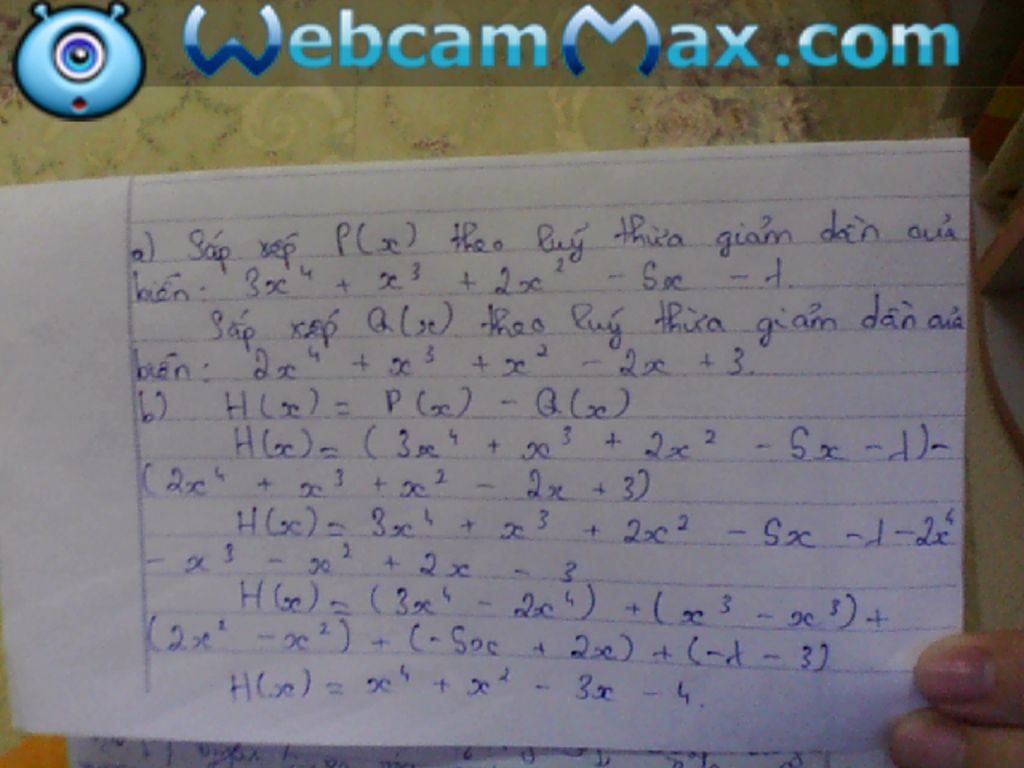 WebcamMax.com
a) Sắp xếp P(x) theo luỹ thừa giảm dần của
biến: 3x⁴ + x³ + 2x² - 5x - 1.
Sắp xếp Q(x) theo luỹ thừa giảm dần của
biến: 2x⁴ + x³ + x² - 2x + 3.
b) H(x) = P(x) - Q(x)
H(x) = (3x⁴ + x³ + 2x² - 5x - 1) -
(2x⁴ + x³ + x² - 2x + 3)
H(x) = 3x⁴ + x³ + 2x² - 5x - 1 - 2x⁴
- x³ - x² + 2x - 3
H(x) = (3x⁴ - 2x⁴) + (x³ - x³) +
(2x² - x²) + (-5x + 2x) + (-1 - 3)
H(x) = x⁴ + x² - 3x - 4.